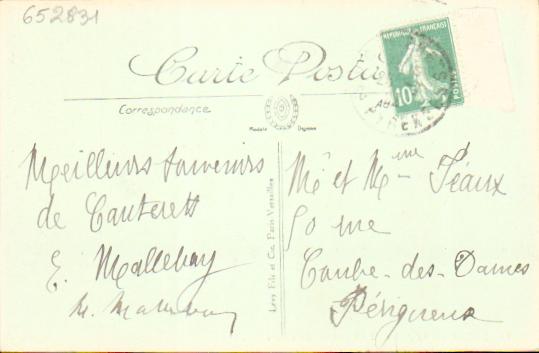 652831
Carte Postale
RÉPUBLIQUE FRANÇAISE
10c
POSTES
Correspondance
Modèle Déposé
Meilleurs souvenirs
de Cauterets
E. Mallebay
Levy Fils et Cie, Paris-Versailles
Mr et Mme Féaux
50 rue
Combe-des-Dames
Périgueux